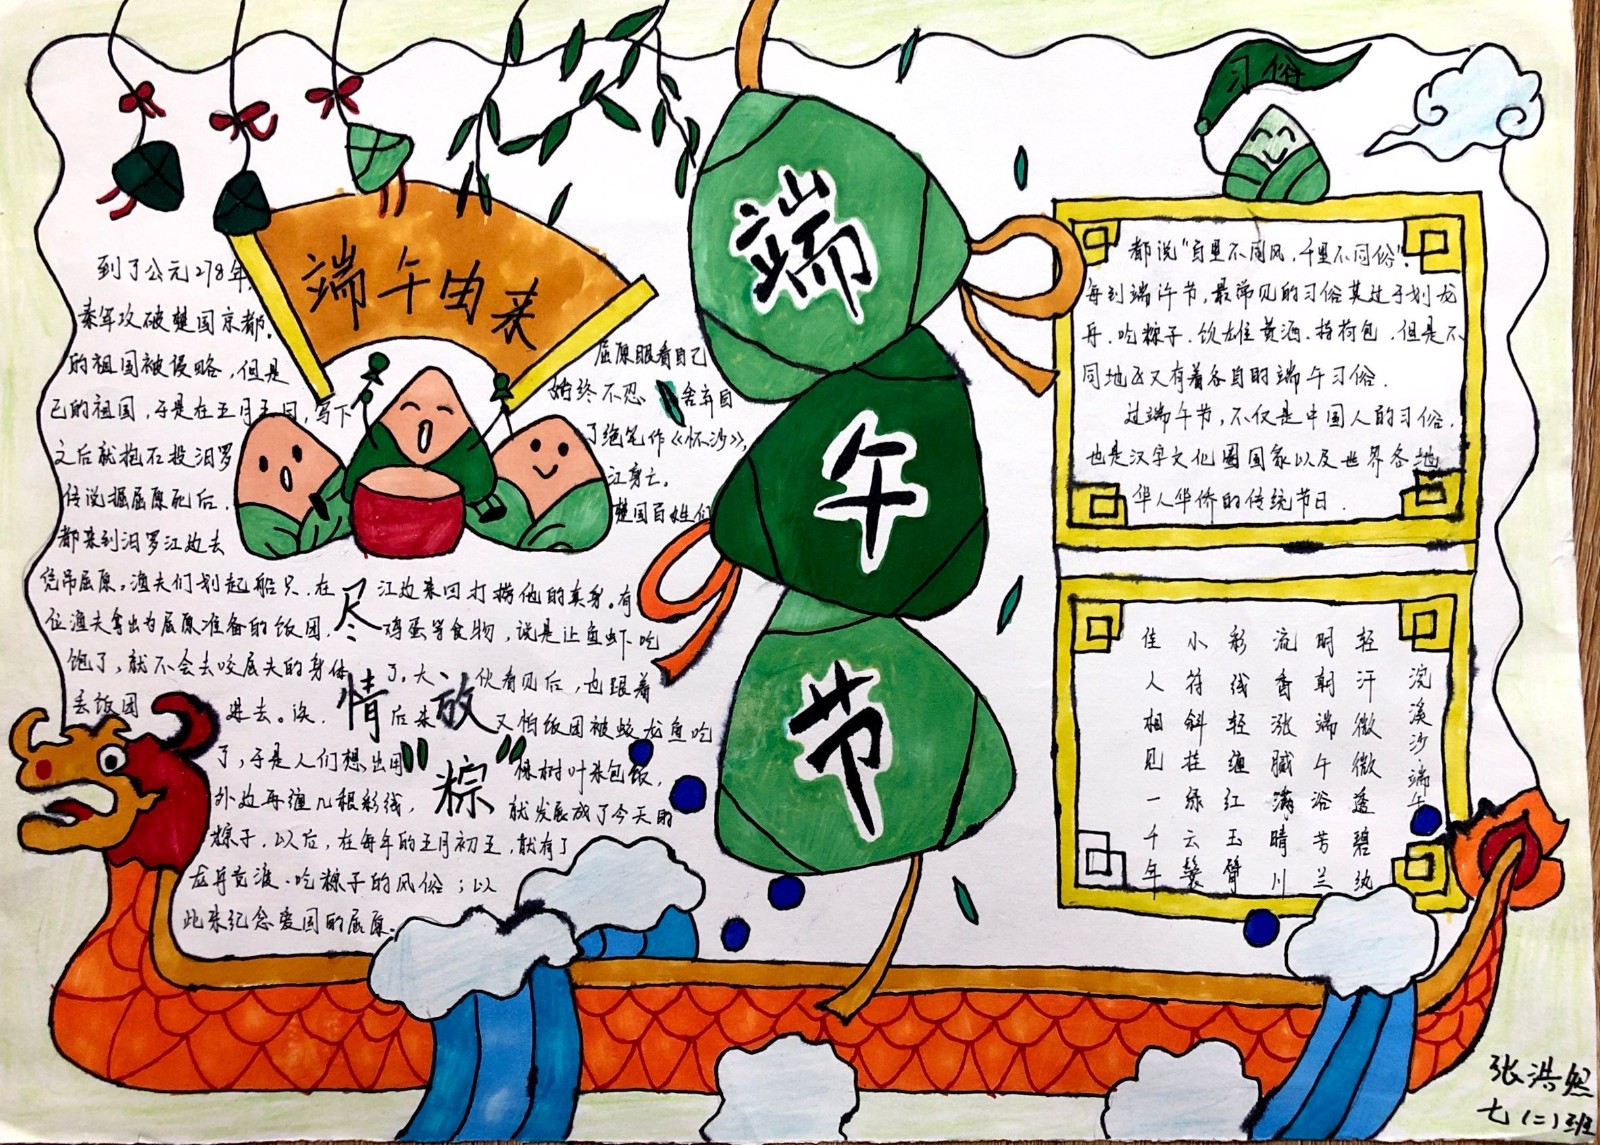 端午节
端午由来
到了公元278年,
秦军攻破楚国京都。
屈原眼看自己
的祖国被侵略,但是
始终不忍舍弃自
己的祖国,于是在五月五日,写下
了绝笔作《怀沙》,
之后就抱石投汨罗
江身亡。
传说掘屈原死后,
楚国百姓们
都来到汨罗江边去
屈原。渔夫们划起船只,在江边来回打捞他的真身。有
位渔夫拿出为屈原准备的饭团,鸡蛋等食物,说是让鱼虾吃
饱了,就不会去咬屈夫的身体了。大、伙看见后,也跟着
丢饭团进去。后来又怕饭团被蛟龙鱼吃
了,于是人们想出用树叶来包饭,
外边再缠几根彩线,就发展成了今天的
粽子,以后,在每年的五月初五,就有了
龙舟竞渡、吃粽子的风俗;以
此来纪念爱国的屈原。
尽
情
放
"粽"
习俗
都说"百里不同风,千里不同俗".
每到端午节,最常见的习俗莫过于划龙
舟、吃粽子、饮雄黄酒、持荷包,但是不
同地区又有着各自的端午习俗.
过端午节,不仅是中国人的习俗,
也是汉字文化圈国家以及世界各地
华人华侨的传统节日.
浣溪沙·端午
轻汗微微透碧纨
明朝端午浴芳兰
流香涨腻满晴川
彩线轻缠红玉臂
小符斜挂绿云鬟
佳人相见一千年
张浩然
七(二)班